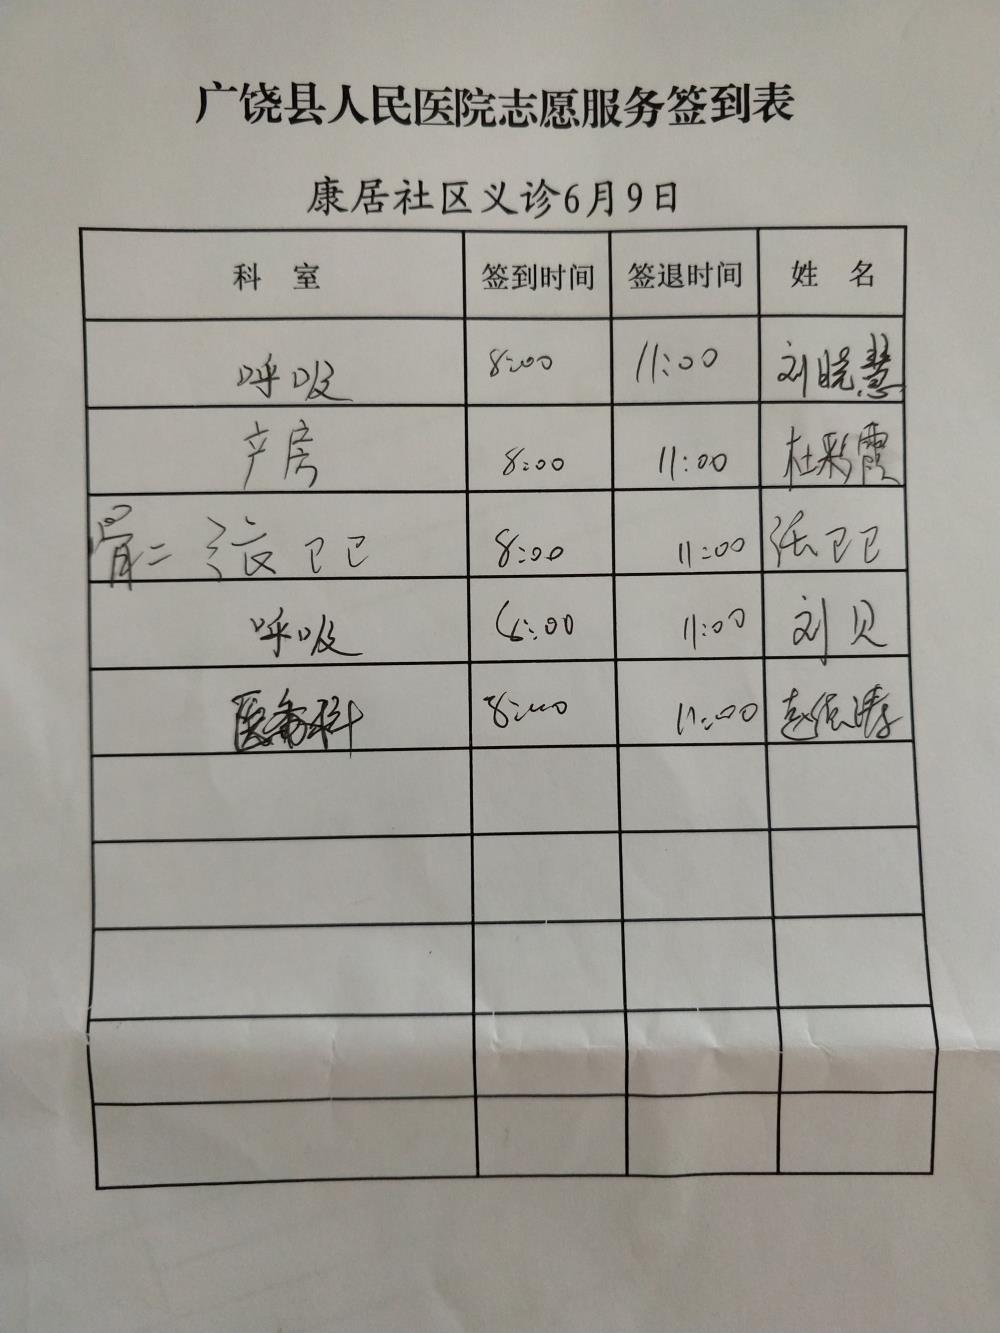 广饶县人民医院志愿服务签到表
康居社区义诊6月9日
科 室 签到时间 签退时间 姓 名
呼吸 8:00 11:00 刘晓慧
产房 8:00 11:00 杜彩霞
骨二 张卫卫 8:00 11:00 张卫卫
呼吸 11:00 刘贝
医务科 8:00 11:00